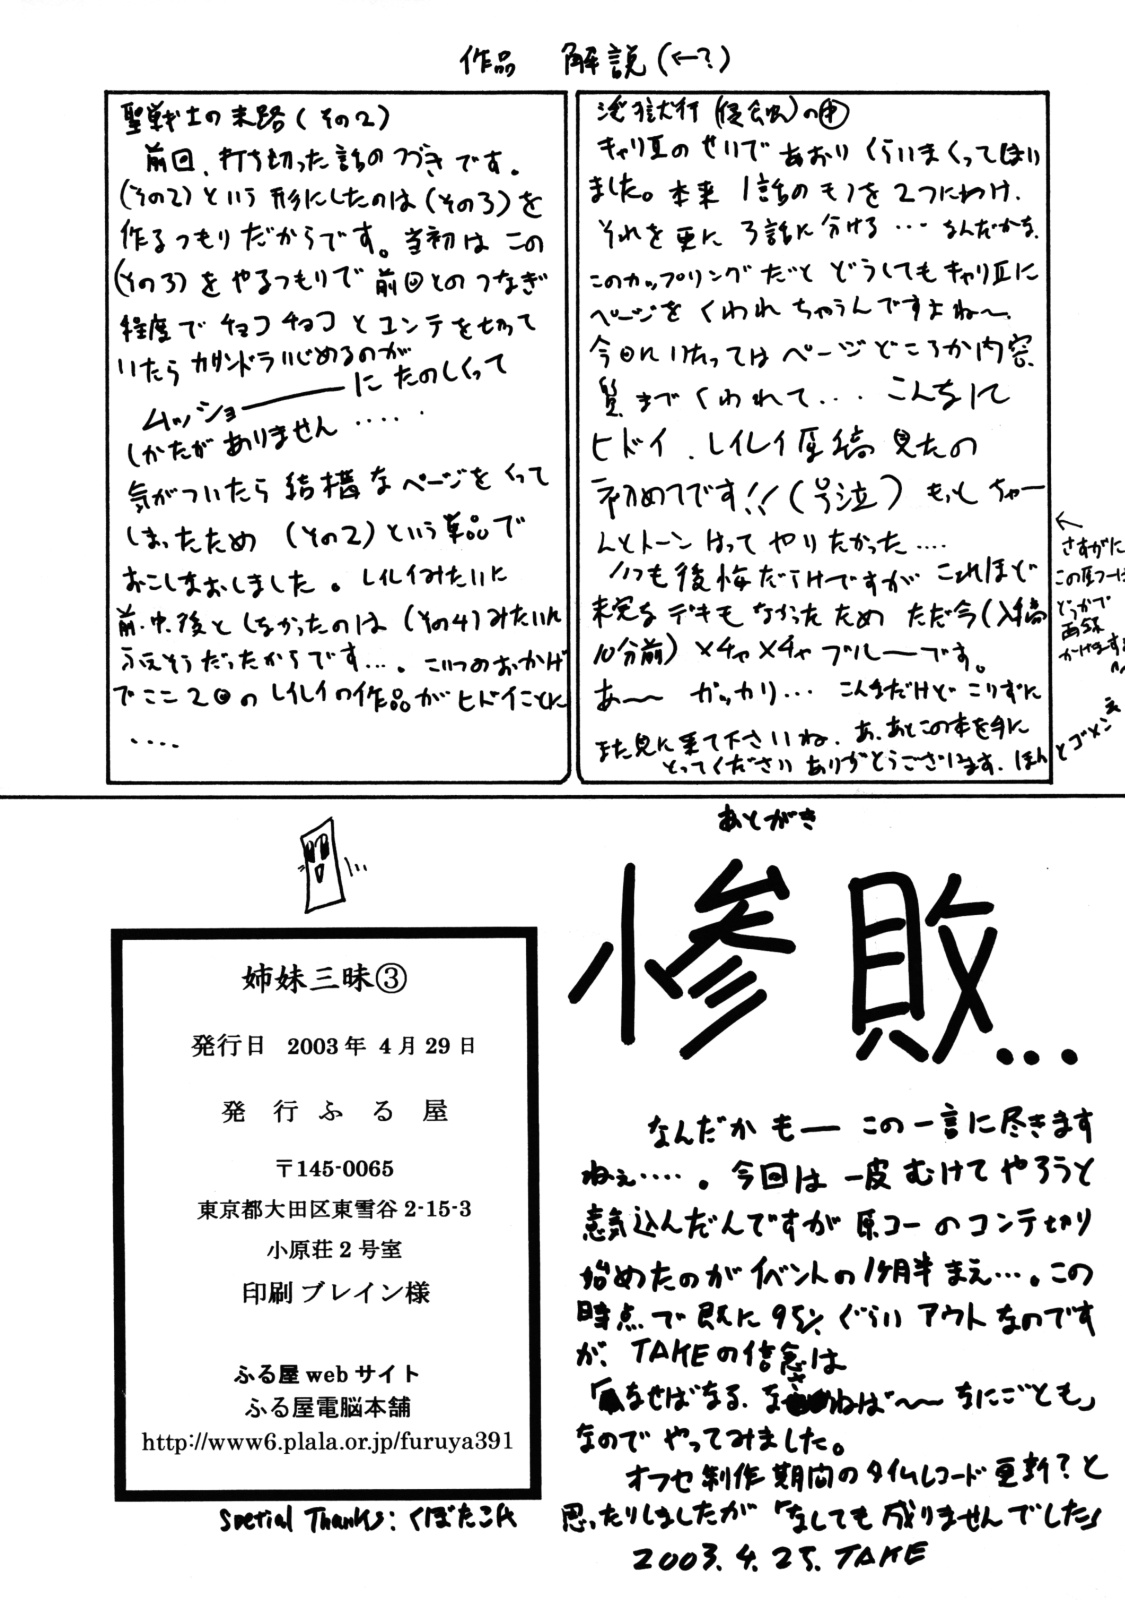 作品 解説(←?)
聖戦士の末路(その2)
前回、打ち切った話のつづきです。
(その2)という形にしたのは(その3)を
作るつもりだからです。当初はこの
(その3)をやるつもりで前回とのつなぎ
程度でチョコチョコとコンテを切って
いたらカサンドラいじめるのが
ムッショーーーにたのしくって
しかたがありません・・・・・
気がついたら結構なページをくって
しまったため(その2)という単品で
おこしなおしました。レイレイみたいに
前・中・後としなかったのは(その4)みたいに
ふえそうだったからです・・・。こいつのおかげ
でここ2回のレイレイの作品がヒドイことに
・・・・
淫獄行(侵食)の中
キャリエのせいであおりくらいまくってまい
ました。本来1話のモノを2つにわけ、
それを更に3話に分ける・・・なんだかな、
このカップリングだとどうしてもキャリエに
ページをくわれちゃうんですよね〜、
今回にいたってはページどころか内容、
質までくわれて・・・こんなに
ヒドイ、レイレイ原稿見たの
初めてです!!(号泣)もっとちゃー
んとトーンはってやりたかった・・・・
いつも後悔だらけですがこれほど
未完なデキもなかったためただ今(入稿
10分前)メチャメチャブルーです。
あ〜〜ガッカリ・・・こんなだけどこりずに
また見に来て下さいね、あ、あとこの本を手に
とってくださりありがとうございます、ほんとゴメンネ
←
さすがに
この原コーは
どっかで
再録
かけます
あとがき
惨敗...
なんだかもーーこの一言に尽きます
ねぇ・・・・・。今回は一皮むけてやろうと
意気込んだんですが原コーのコンテ切り
始めたのがイベントの1ヶ月半まえ・・・。この
時点で既に95%ぐらいアウトなのです
が、TAKEの信念は
「なせばなる、なさねば〜〜なにごとも」
なのでやってみました。
オフセ制作期間のタイムレコード更新?と
思ったりしましたが「なしても成りませんでした」
2003.4.25.TAKE
姉妹三昧③
発行日 2003年4月29日
発行ふる屋
〒145-0065
東京都大田区東雪谷2-15-3
小原荘2号室
印刷 ブレイン様
ふる屋webサイト
ふる屋電脳本舗
http://www6.plala.or.jp/furuya391
Special Thanks: くぼたこん